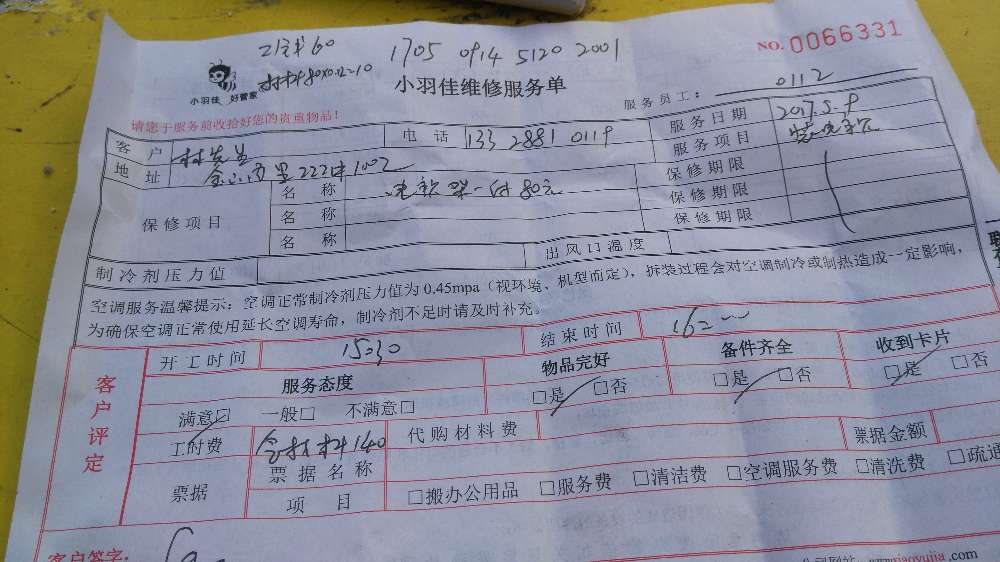 1705 0914 5120 2001
NO. 0066331
小羽佳 好管家
小羽佳维修服务单
服务员工: 0112
请您于服务前收拾好您的贵重物品!
客户 林先生 电话 133 2881 0119 服务日期 2017.5.9
地址 222 1002 服务项目
保修项目 名称 一付80元 保修期限
名称 保修期限
名称 保修期限
制冷剂压力值 出风口温度
空调服务温馨提示:空调正常制冷剂压力值为0.45mpa(视环境、机型而定),拆装过程会对空调制冷或制热造成一定影响,
为确保空调正常使用延长空调寿命,制冷剂不足时请及时补充。
开工时间 15:30 结束时间
客户评定
服务态度 物品完好 备件齐全 收到卡片
满意☑ 一般□ 不满意□ □是 □否 □是 □否 □是 □否
工时费 含材料140 代购材料费 票据金额
票据 票据名称
项目 □搬办公用品 □服务费 □清洁费 □空调服务费 □清洗费 □疏通
客户签字: